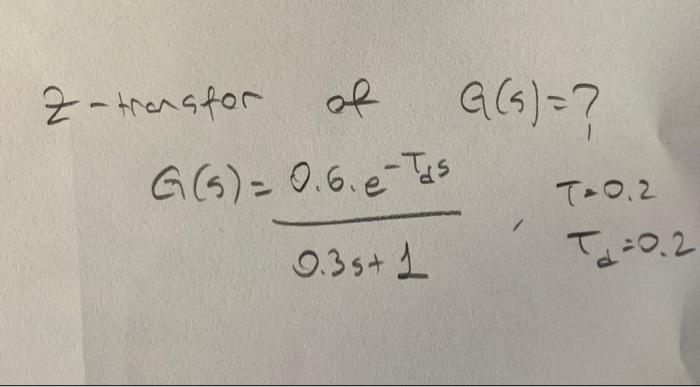 Z-transfor of G(s)=?
G(s)= 0.6.e^-Tds
0.3s+1
, T=0.2
Td=0.2